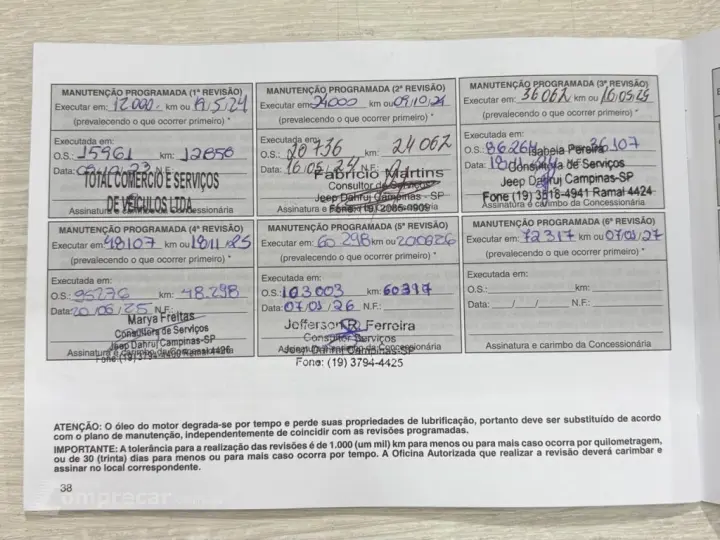 MANUTENÇÃO PROGRAMADA (1ª REVISÃO)
Executar em: 12000 km ou 19/5/24
(prevalecendo o que ocorrer primeiro) *
Executada em:
O.S.: 15961 km: 12858
Data: N.F.:
TOTAL COMERCIO E SERVIÇOS
DE VEÍCULOS LTDA
Assinatura e carimbo da Concessionária
MANUTENÇÃO PROGRAMADA (2ª REVISÃO)
Executar em: 24000 km ou 09/10/24
(prevalecendo o que ocorrer primeiro) *
Executada em:
O.S.: 20736 24062
Data: 16/05/24 N.F.:
Fabrício Martins
Consultor de Serviços
Jeep Dahruj Campinas - SP
Fone: (19) 2085-0909
Assinatura e carimbo da Concessionária
MANUTENÇÃO PROGRAMADA (3ª REVISÃO)
Executar em: 36062 km ou 16/05/25
(prevalecendo o que ocorrer primeiro) *
Executada em:
O.S.: 86264 36107
Isabela Pereira
Data: 18/11/24
Consultora de Serviços
Jeep Dahruj Campinas - SP
Fone (19) 3518-4941 Ramal 4424
Assinatura e carimbo da Concessionária
MANUTENÇÃO PROGRAMADA (4ª REVISÃO)
Executar em: 48107 km ou 18/11/25
(prevalecendo o que ocorrer primeiro) *
Executada em:
O.S.: 95276 km: 48.298
Data: 20/06/25 N.F.:
Marya Freitas
Consultora de Serviços
Jeep Dahruj Campinas-SP
Assinatura e carimbo da Concessionária
Ramal 4425
MANUTENÇÃO PROGRAMADA (5ª REVISÃO)
Executar em: 60.298 km ou 20/06/26
(prevalecendo o que ocorrer primeiro) *
Executada em:
O.S.: 103003 km: 60317
Data: 07/01/26 N.F.:
Jefferson R. Ferreira
Consultor Serviços
Assinatura e carimbo da Concessionária
Jeep Dahruj Campinas-SP
Fone: (19) 3794-4425
MANUTENÇÃO PROGRAMADA (6ª REVISÃO)
Executar em: 72317 km ou 07/01/27
(prevalecendo o que ocorrer primeiro) *
Executada em:
O.S.: km:
Data: / / N.F.:
Assinatura e carimbo da Concessionária
ATENÇÃO: O óleo do motor degrada-se por tempo e perde suas propriedades de lubrificação, portanto deve ser substituído de acordo
com o plano de manutenção, independentemente de coincidir com as revisões programadas.
IMPORTANTE: A tolerância para a realização das revisões é de 1.000 (um mil) km para menos ou para mais caso ocorra por quilometragem,
ou de 30 (trinta) dias para menos ou para mais caso ocorra por tempo. A Oficina Autorizada que realizar a revisão deverá carimbar e
assinar no local correspondente.
38
comprecar.com.br